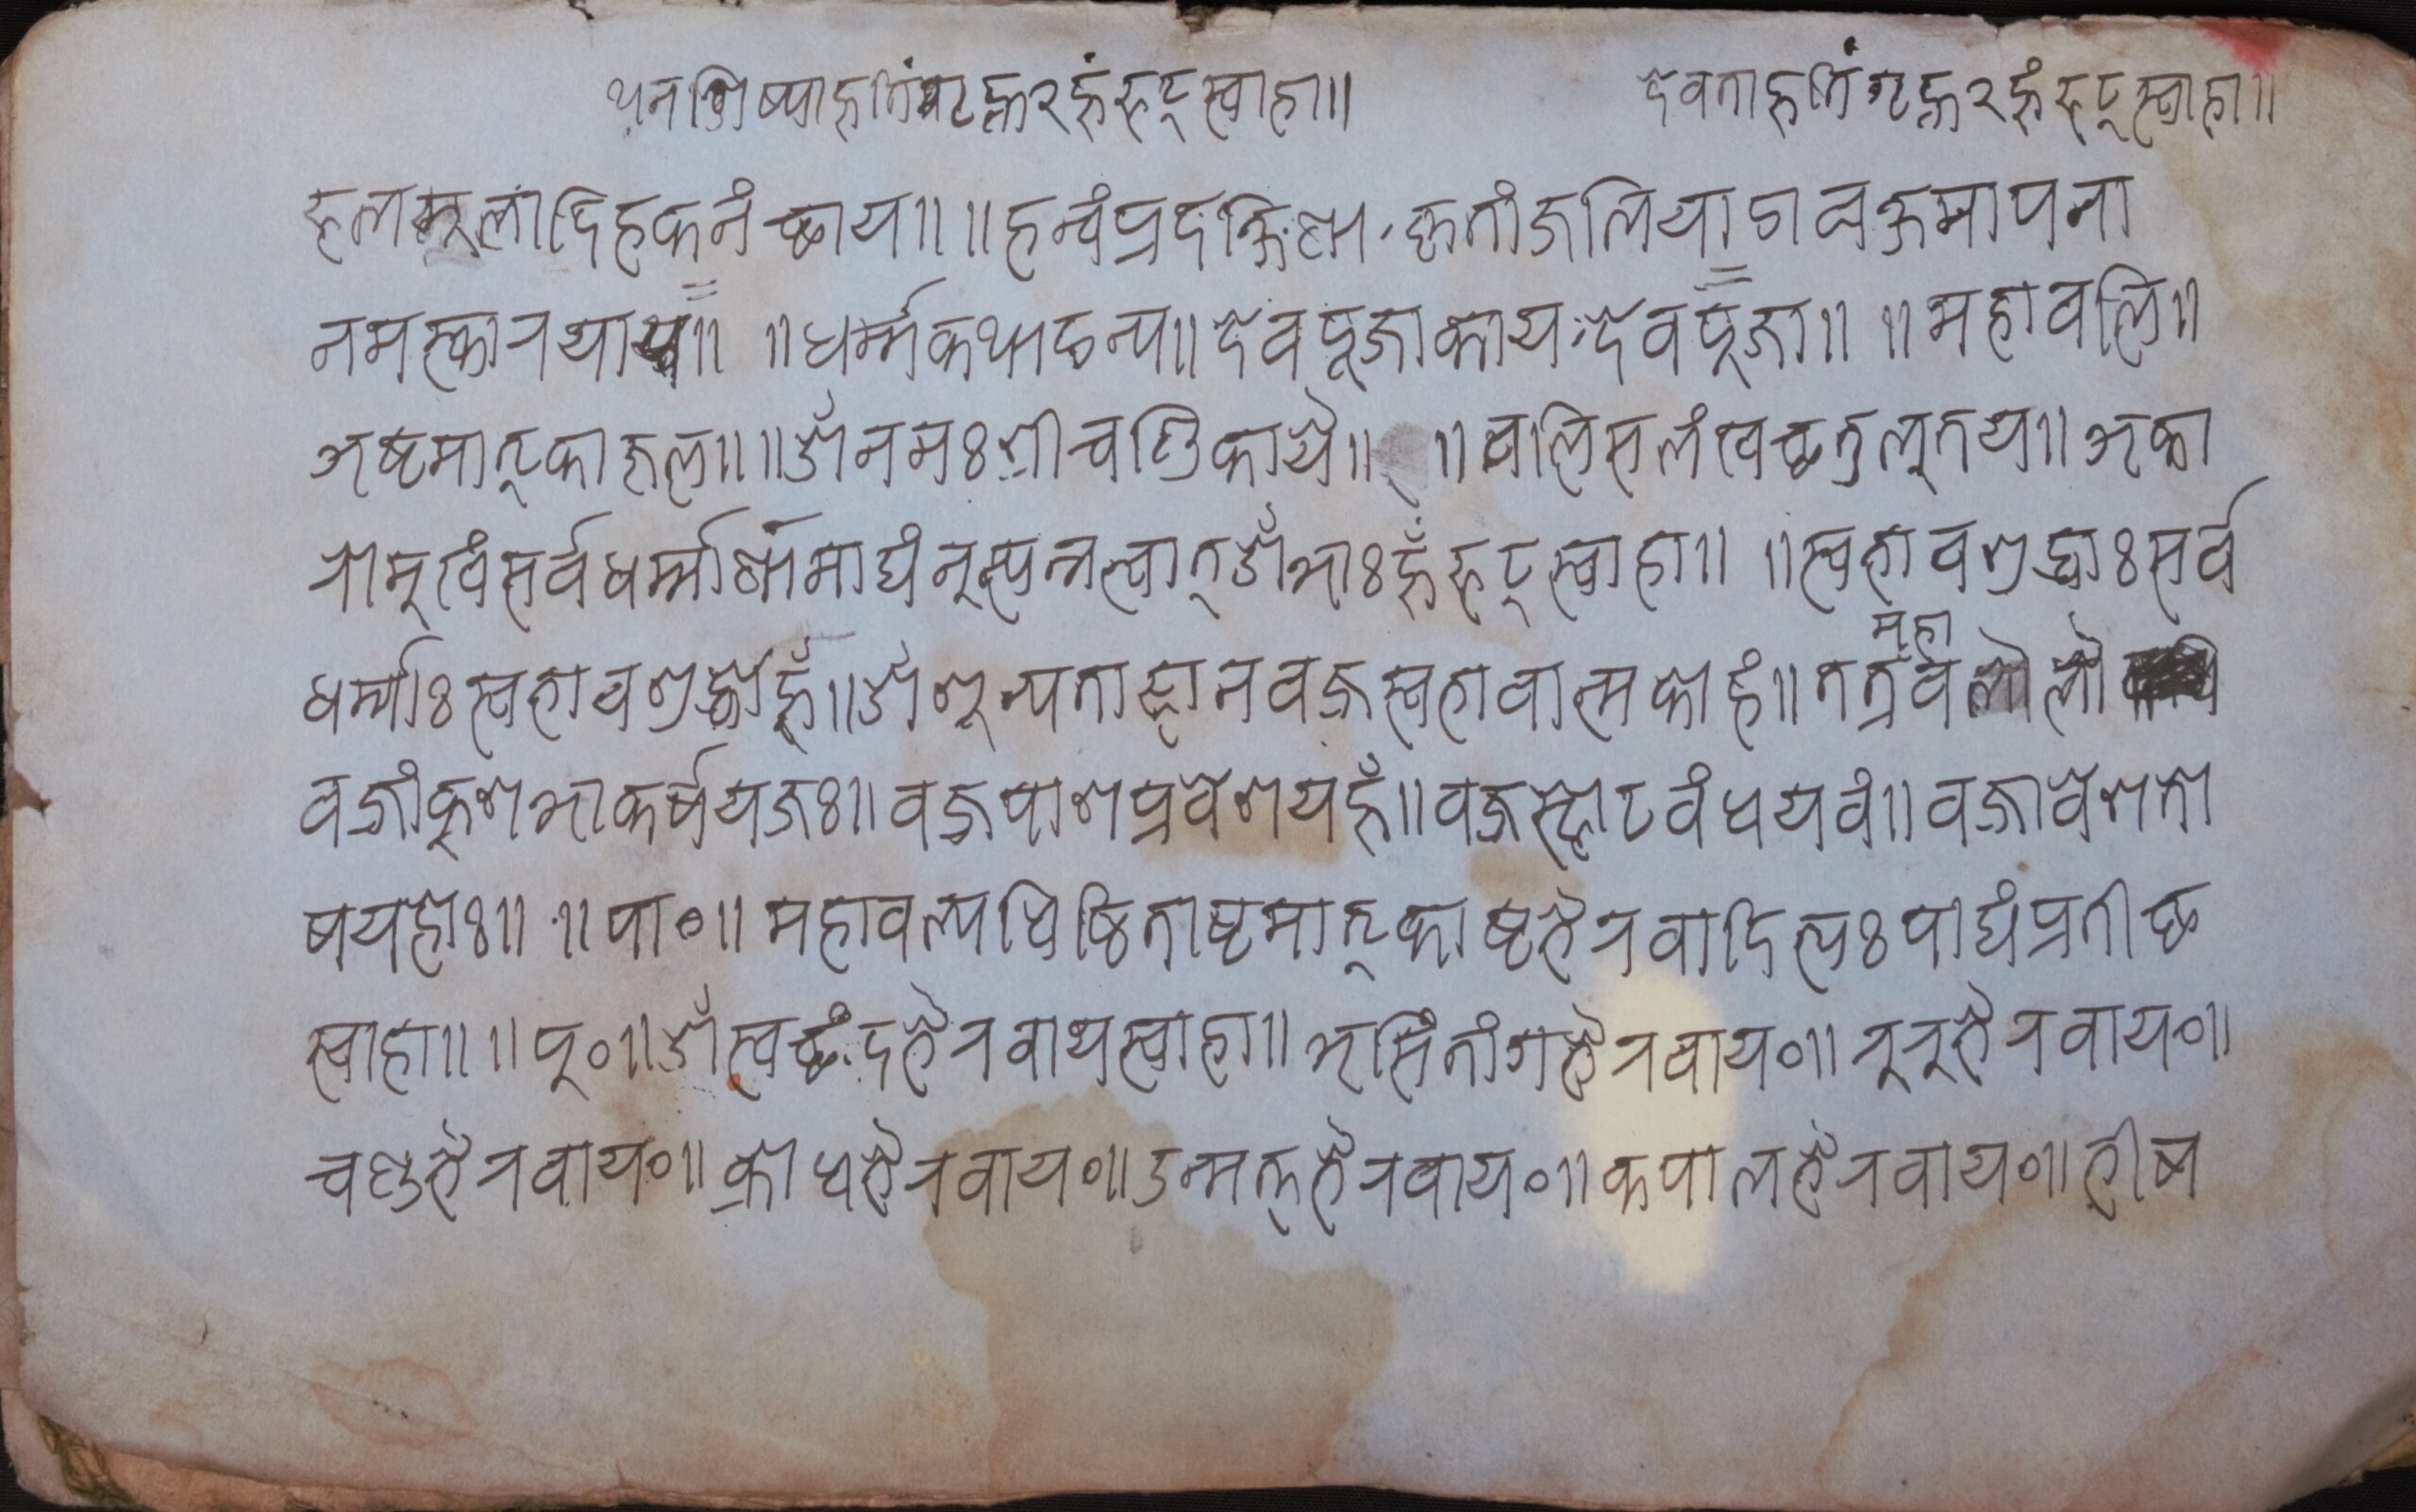 थनशिष्याहुतिं गृह्न २ हुं फट् स्वाहा॥ देवताहुतिं गृह्न २ हुं फट् स्वाहा॥
फलमूलादि हकनं छाय॥ ॥ हन्वं प्रदक्षिणा, कृतांजलि याङाव क्षमापना
नमस्कार याय॥ ॥ धर्म्मकथा ङन्य॥ देवपूजा काय, देवपूजा॥ ॥ महावलि॥
अष्टमातृका जुल॥ ॥ ॐ नमः श्रीचण्डिकायै॥ ॥ वलिस लंखच्छत्रुलूतय॥ अका
रोमूखं सर्वधर्म्माणामाद्यंनूत्पन्नत्वात् ॐ आः हुँ फट् स्वाहा॥ ॥ स्वभावशुद्धाः सर्व
धर्म्माः स्वभावशुद्धोहूँ॥ ॐ शून्यताज्ञानवज्रस्वभावात्मकोहं॥ तत्रैव महा वलौ
वज्रांकुश आकर्षय जः॥ वज्रपाश प्रवेशय हुँ॥ वज्रस्फोट वंधय वं॥ वज्रावेश तो
षय होः॥ ॥ पा०॥ महावल्यधिष्ठिताष्टमातृकाष्टभैरवादिभ्यः पाद्यं प्रतीछ
स्वाहा॥ ॥ पू०॥ ॐ स्वच्छंदभैरवाय स्वाहा॥ असितांगभैरवाय०॥ रुरुभैरवाय०॥
चण्डभैरवाय०॥ क्रोधभैरवाय०॥ उन्मत्तभैरवाय०॥ कपालभैरवाय०॥ भीष